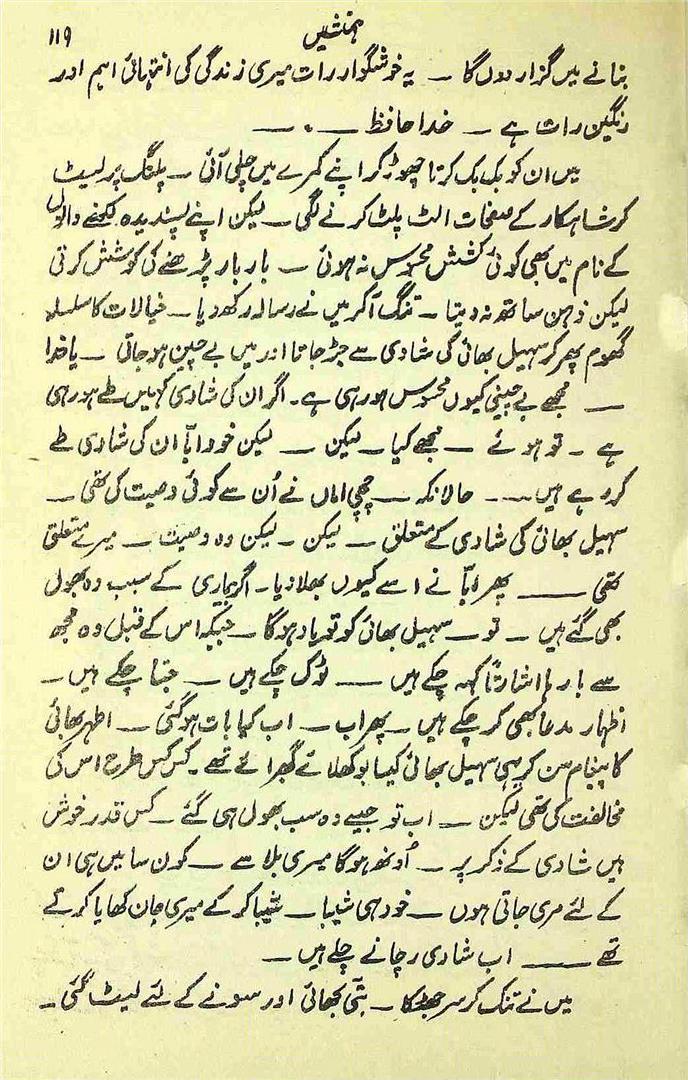 ہمنشیں ۱۱۹
بنانے میں گزار دوں گا ـ یہ خوشگوار رات میری زندگی کی انتہائی اہم اور
رنگین رات ہے ـ خدا حافظ ـ . ـ
میں ان کو بک بک کرتا چھوڑ کر اپنے کمرے میں چلی آئی ـ پلنگ پر لیٹ
کر شاہکار کے صفحات الٹ پلٹ کرنے لگی ـ لیکن اپنے پسندیدہ لکھنے والوں
کے نام میں بھی کوئی کشش محسوس نہ ہوئی ـ بار بار پڑھنے کی کوشش کرتی
لیکن ذہن ساتھ نہ دیتا ـ تنگ آکر میں نے رسالہ رکھ دیا ـ خیالات کا سلسلہ
گھوم پھر کر سہیل بھائی کی شادی سے جڑ جاتا اور میں بے چین ہو جاتی ـ یا خدا
ـ مجھے بے چینی کیوں محسوس ہو رہی ہے۔ اگر ان کی شادی کہیں طے ہو رہی
ہے ـ تو ہوئے ـ مجھے کیا ـ لیکن ـ لیکن خود ابّا ان کی شادی طے
کر رہے ہیں ـ۔ حالانکہ ـ چچی اماں نے اُن سے کوئی وصیت کی تھی ـ
سہیل بھائی کی شادی کے متعلق ـ لیکن ـ لیکن وہ وصیت ـ میرے متعلق
تھی ـ پھر ابّا نے اسے کیوں بھلا دیا ـ اگر بیماری کے سبب وہ بھول
بھی گئے ہیں ـ تو ـ سہیل بھائی کو تو یاد ہوگا ـ جبکہ اس کے قبل وہ مجھ
سے بارہا اشارتاً کہہ چکے ہیں ـ ٹوک چکے ہیں ـ جتا چکے ہیں ـ
اظہار مدعا بھی کر چکے ہیں ـ پھر اب ـ اب کیا بات ہو گئی ـ اظہر بھائی
کا پیغام سن کر ہی سہیل بھائی کیسا بوکھلائے گھبرائے تھے ـ کس کس طرح اس کی
مخالفت کی تھی لیکن ـ اب تو جیسے وہ سب بھول ہی گئے ـ کس قدر خوش
ہیں شادی کے ذکر پر ـ اُونھ ہوگا میری بلا سے ـ کون سا میں ہی ان
کے لئے مری جاتی ہوں ـ خود ہی شیبا ـ شیبا کر کے میری جان کھایا کرتے
تھے ـ اب شادی رچانے چلے ہیں ـ
میں نے تنک کر سر جھٹکا ـ بتّی بجھائی اور سونے کے لئے لیٹ گئی ـ